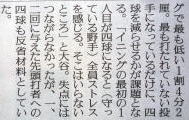 グで最も低い１割４分２
厘。最も打たれていない投
手になっているだけに、四
球を減らせるかが課題とな
る。「イニングの最初の１
人目が四球になると（守っ
ている野手）全員ストレス
を感じる。そこはいらない
ところ」と大谷。失点には
つながらなかったが、一、
二回に与えた先頭打者への
四球も反省材料としてい
た。